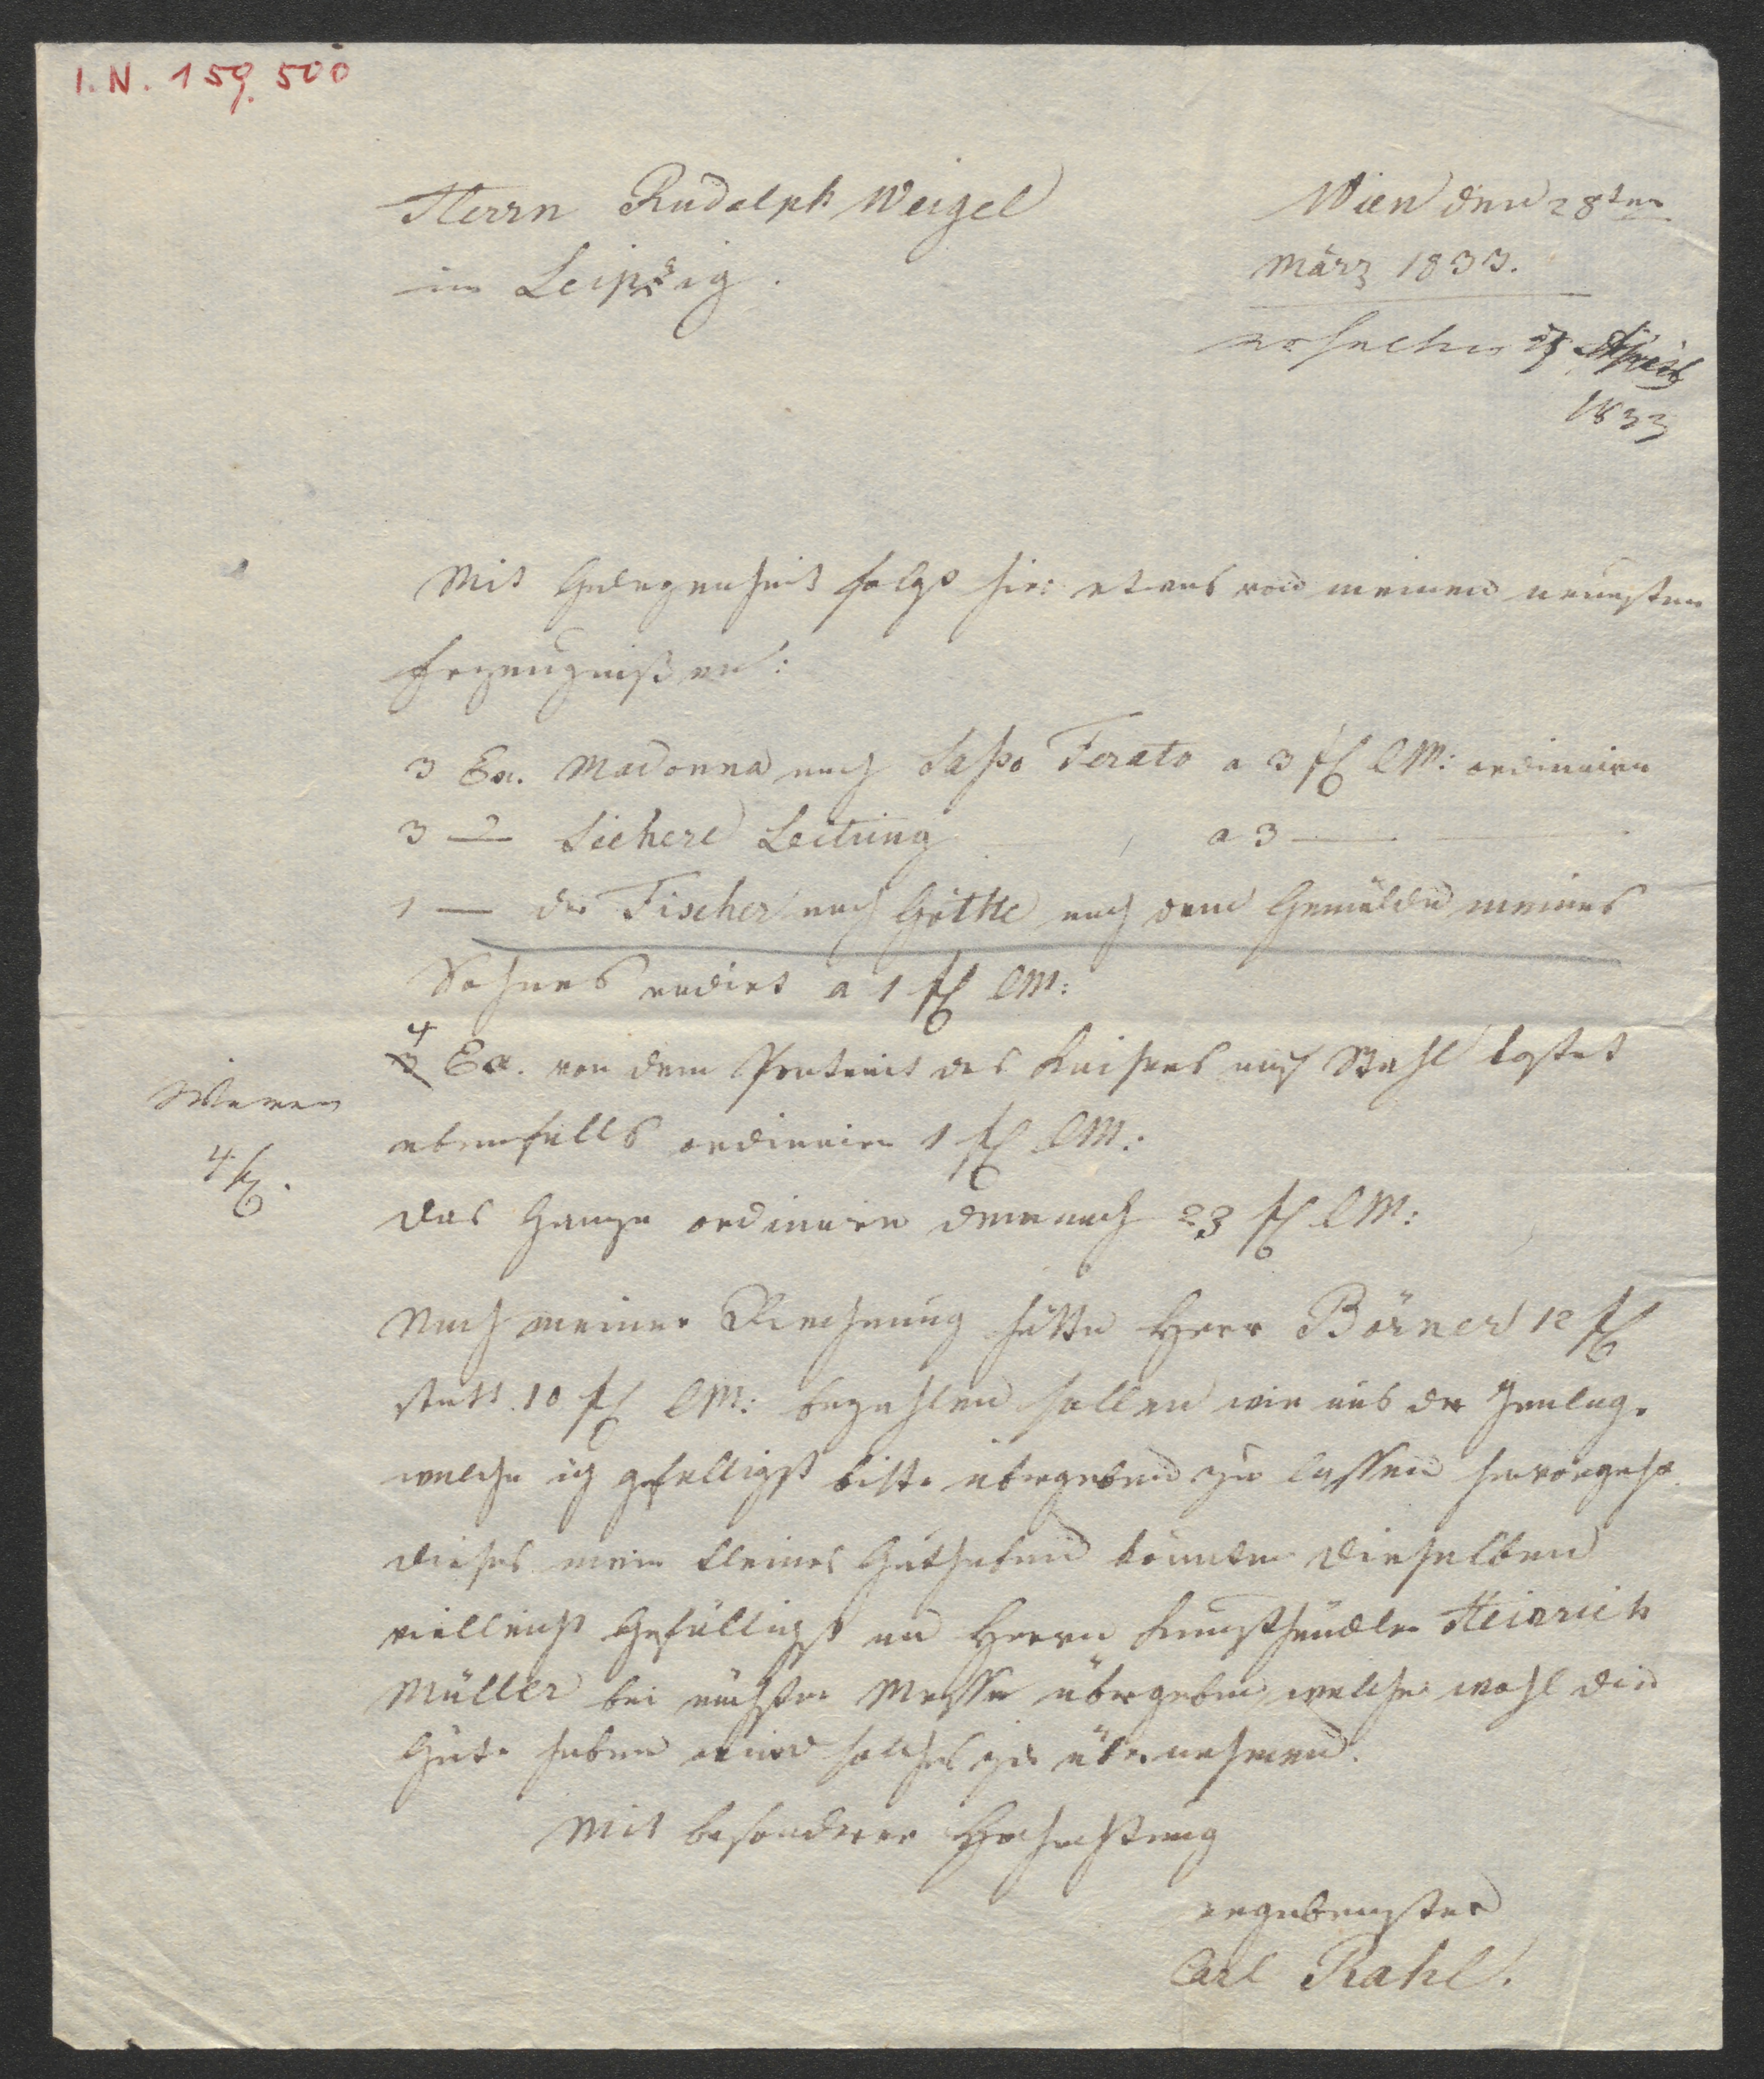 I. N. 159.500
Herrn Rudolph Weigel
in Leipzig.
Wien den 28ten
März 1833.
erhalten April
1833
Mit Gelegenheit folgt hier etwas von meinen neuesten
Erzeugnißen:
3 Ex. Madonna nach Saßo Ferato a 3 fl CM: ordinaire
3 — Sichere Leitung a 3 —
1 — der Fischer nach Göthe nach dem Gemälde meines
Sohnes radirt a 1 fl CM:
4
3 Ex. von dem Portrait des Kaisers auf Stahl kostet
ebenfalls ordinaire 1 fl CM:
Waren
4 fl.
das Ganze ordinaire demnach 23 fl CM:
Nach meiner Rechnung hätte Herr Börner 12 fl
statt 10 fl CM: bezahlen sollen wie aus der
welche ich gefälligst bitte übergeben zu lassen hervorgeht.
dieses mein kleines Guthaben könnten dieselben
vielleicht gefälligst an Herrn Kunsthändler Heinrich
Müller bei nächster Messe übergeben welcher wohl die
Güte haben wird solches zu übernehmen.
Mit besonderer Hochachtung
ergebenster
Carl Rahl.